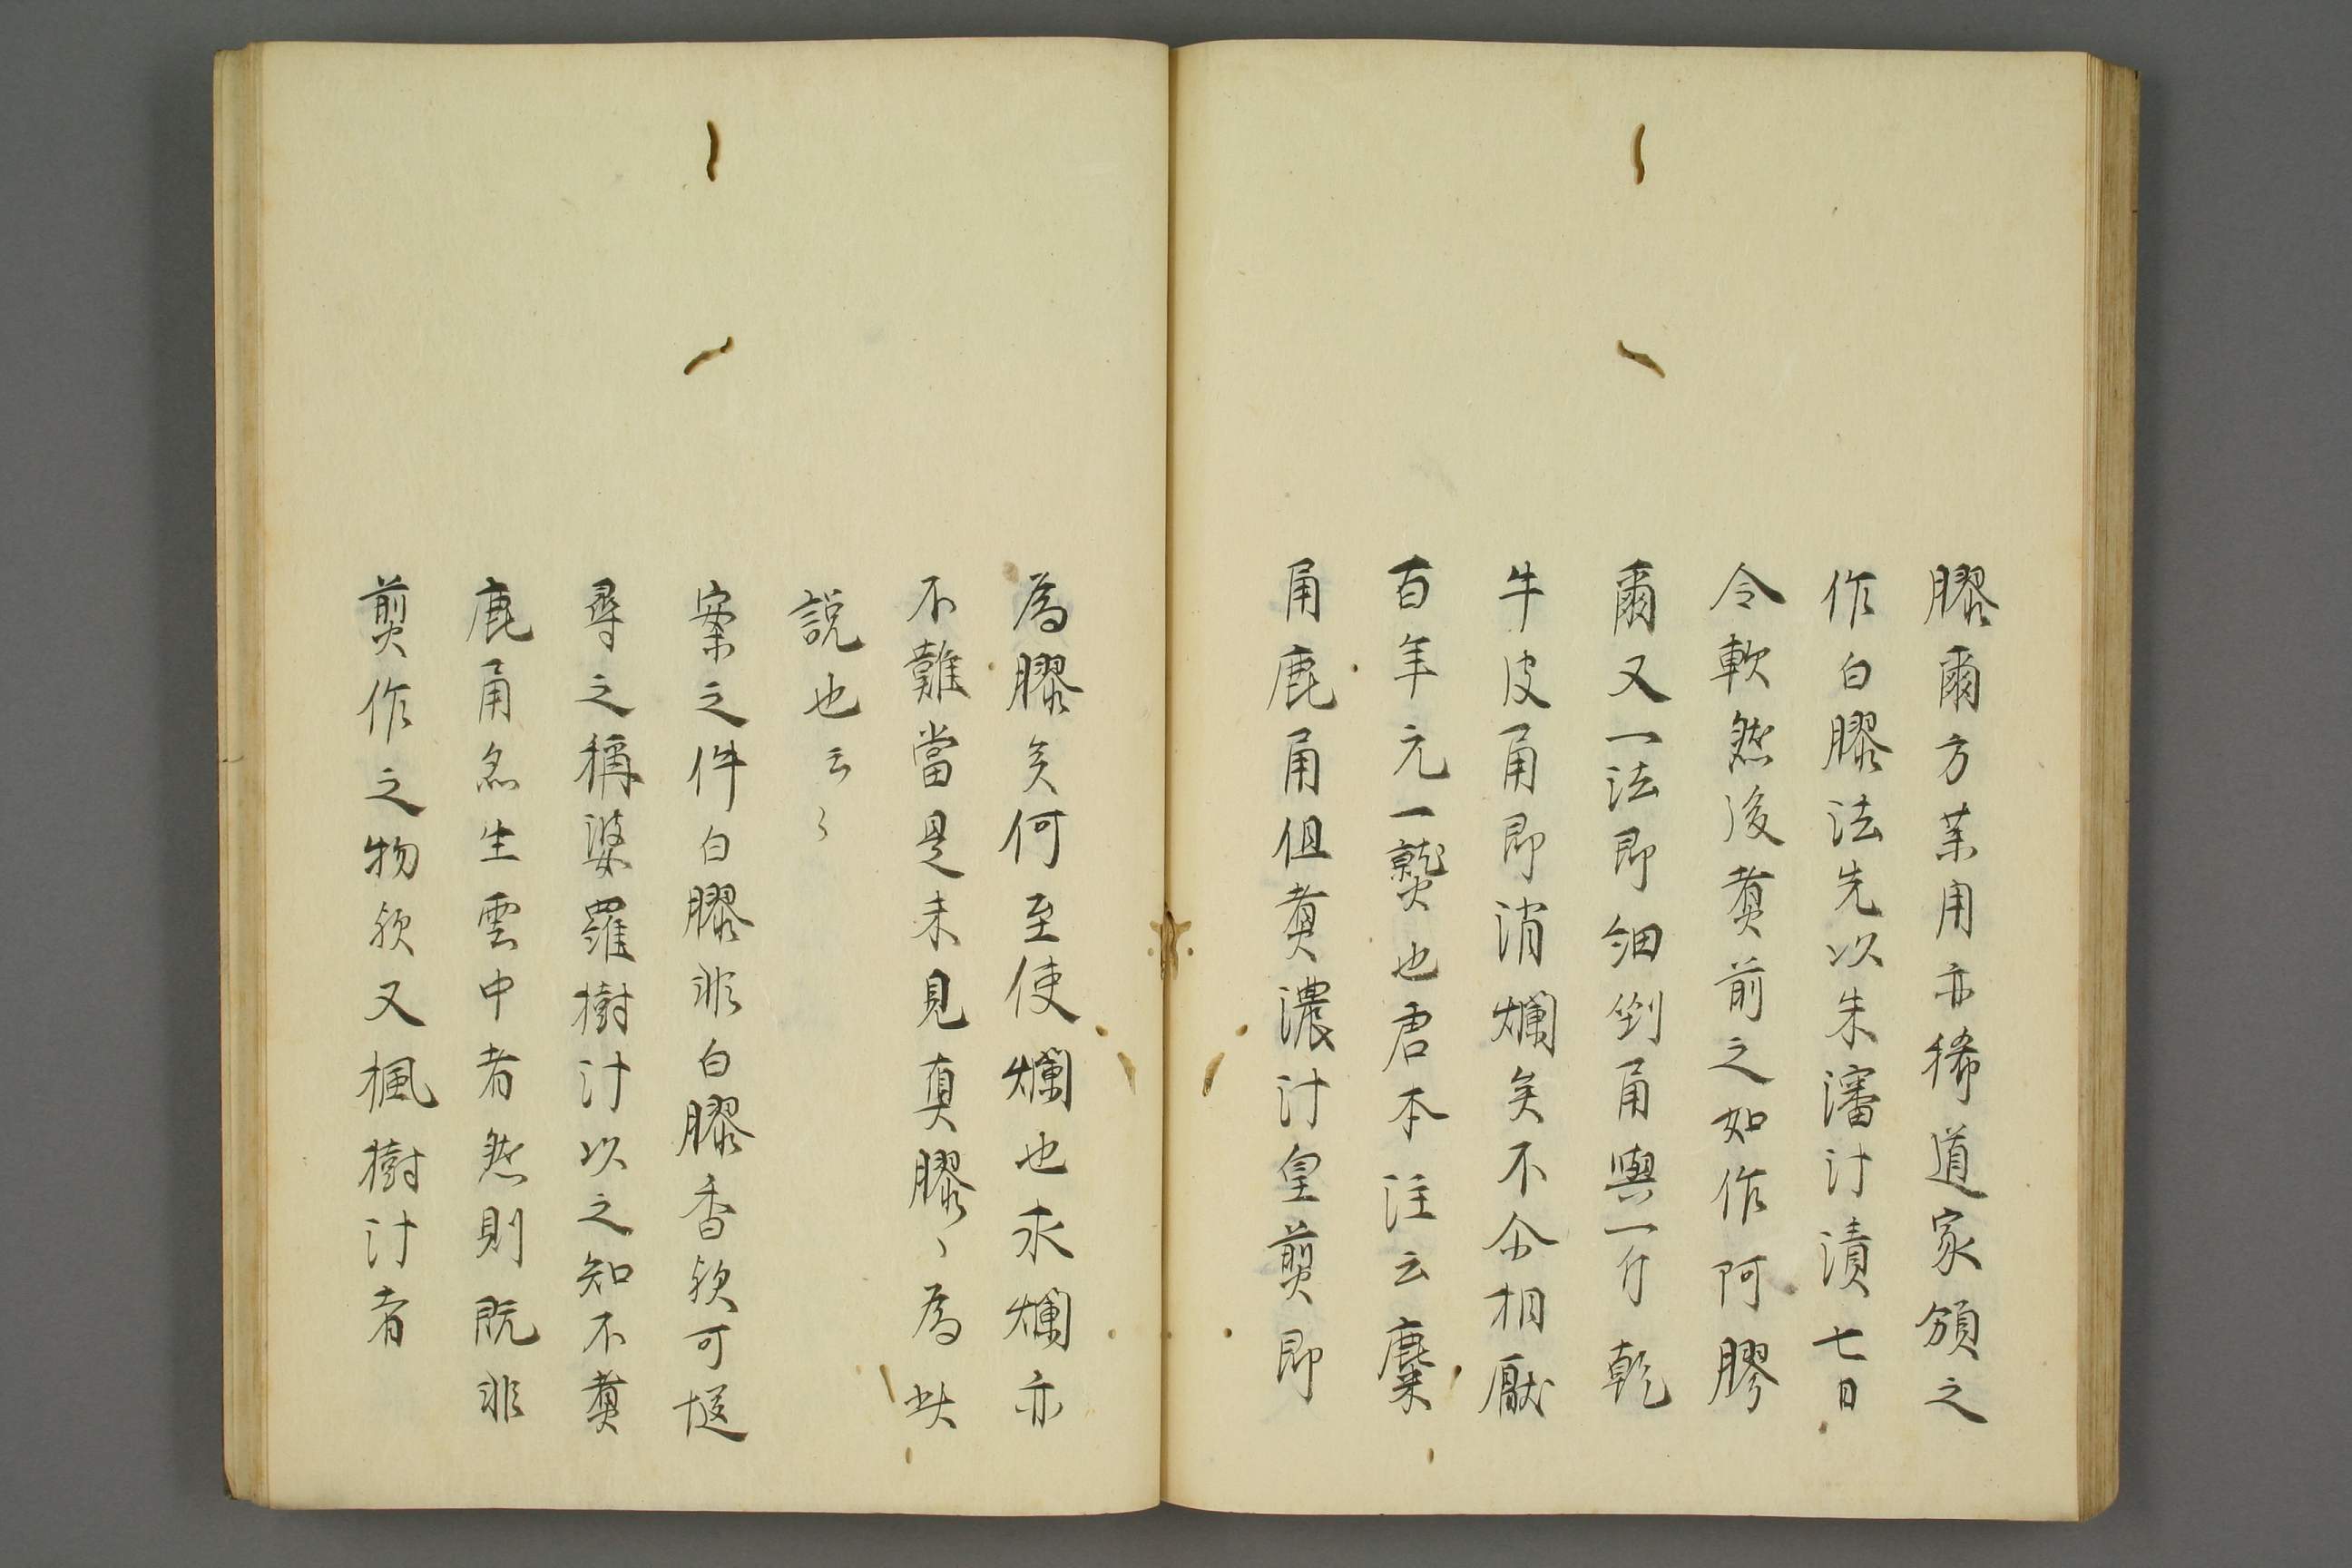 膠爾方藥用亦稀道家頗之
作白膠法先以朱瀋汁漬七日
令軟然後煮前之如作阿膠
爾又一法即細剉甪與一斤乾
牛皮甪即消爛矣不尒相厭
百年元一也君本注云麋
甪鹿甪但煮濃汁皇煎即
為膠矣何至使爛也求爛亦
不難當是未見真膠〻為此
說也云〻
案之件白膠非白膠香欤可
尋之稱婆羅樹汁以之知不煮
鹿甪名生雲中者然則既非
煎作之物欤又楓樹汁者